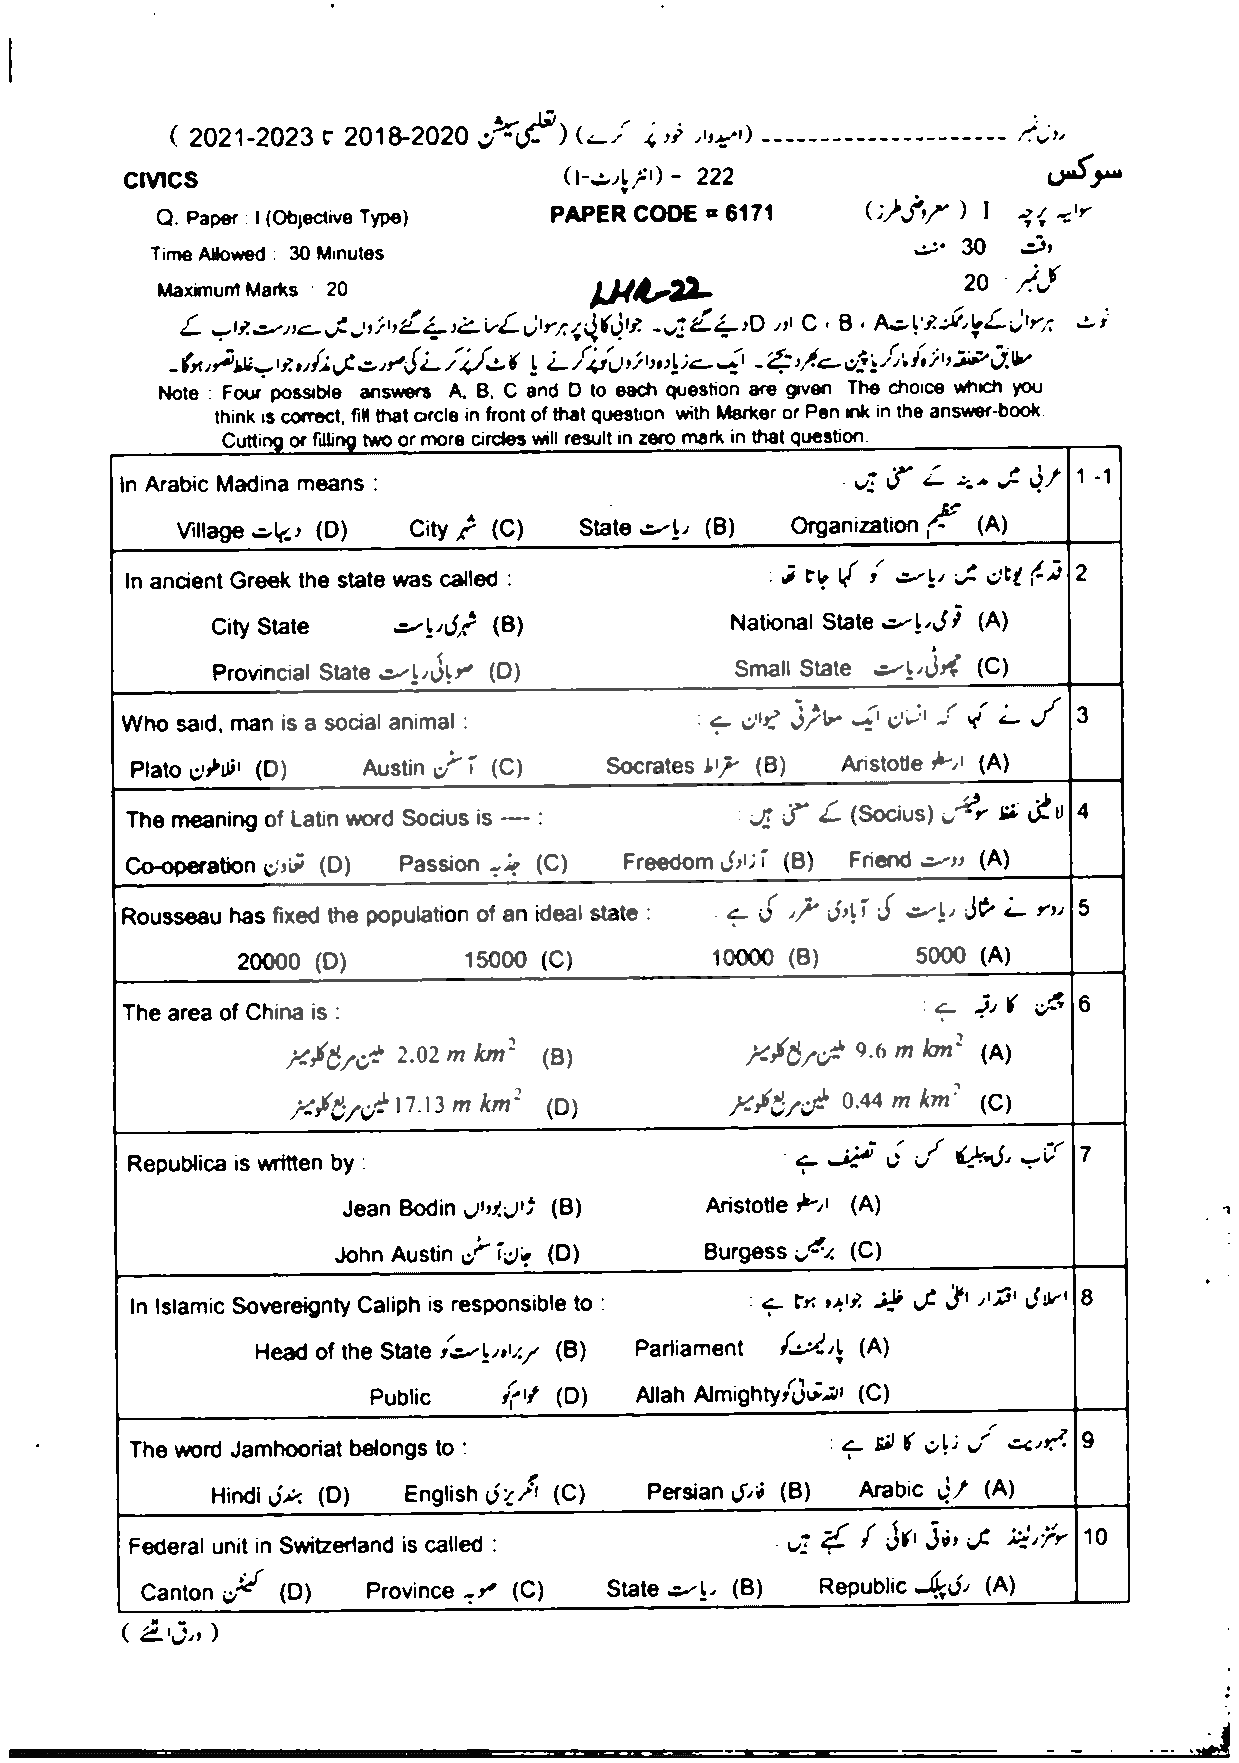 رول نمبر ---------------------- (امیدوار خود پُر کرے) (تعلیمی سیشن 2018-2020 تا 2021-2023 )
CIVICS 222 - (انٹر پارٹ-I) سوکس
Q. Paper : I (Objective Type) PAPER CODE = 6171 سوالیہ پرچہ I ( معروضی طرز )
Time Allowed : 30 Minutes وقت 30 منٹ
Maximum Marks : 20 LHR-22 کل نمبر 20
نوٹ ہر سوال کے چار ممکنہ جوابات A ، B ، C اور D دیے گئے ہیں۔ جوابی کاپی پر ہر سوال کے سامنے دیے گئے دائروں میں سے درست جواب کے
مطابق متعلقہ دائرہ کو مارکر یا پین سے بھر دیجئے۔ ایک سے زیادہ دائروں کو پُر کرنے یا کاٹ کر پُر کرنے کی صورت میں مذکورہ جواب غلط تصور ہوگا۔
Note : Four possible answers A, B, C and D to each question are given The choice which you
think is correct, fill that circle in front of that question with Marker or Pen ink in the answer-book.
Cutting or filling two or more circles will result in zero mark in that question.
In Arabic Madina means : عربی میں مدینہ کے معنی ہیں 1 -1
Village دیہات (D) City شہر (C) State ریاست (B) Organization تنظیم (A)
In ancient Greek the state was called : قدیم یونان میں ریاست کو کہا جاتا تھا : 2
City State شہری ریاست (B) National State قومی ریاست (A)
Provincial State صوبائی ریاست (D) Small State چھوٹی ریاست (C)
Who said, man is a social animal : کس نے کہا کہ انسان ایک معاشرتی حیوان ہے : 3
Plato افلاطون (D) Austin آسٹن (C) Socrates سقراط (B) Aristotle ارسطو (A)
The meaning of Latin word Socius is ---- : لاطینی لفظ سوشیئس (Socius) کے معنی ہیں : 4
Co-operation تعاون (D) Passion جذبہ (C) Freedom آزادی (B) Friend دوست (A)
Rousseau has fixed the population of an ideal state : روسو نے مثالی ریاست کی آبادی مقرر کی ہے 5
20000 (D) 15000 (C) 10000 (B) 5000 (A)
The area of China is : چین کا رقبہ ہے : 6
ملین مربع کلومیٹر 2.02 m km² (B) ملین مربع کلومیٹر 9.6 m km² (A)
ملین مربع کلومیٹر 17.13 m km² (D) ملین مربع کلومیٹر 0.44 m km² (C)
Republica is written by : کتاب ری پبلیکا کس کی تصنیف ہے 7
Jean Bodin ژاں بوداں (B) Aristotle ارسطو (A)
John Austin جان آسٹن (D) Burgess برجیس (C)
In Islamic Sovereignty Caliph is responsible to : اسلامی اقتدار اعلیٰ میں خلیفہ جوابدہ ہوتا ہے : 8
Head of the State سربراہ ریاست کو (B) Parliament پارلیمنٹ کو (A)
Public عوام کو (D) Allah Almighty اللہ تعالیٰ کو (C)
The word Jamhooriat belongs to : جمہوریت کس زبان کا لفظ ہے : 9
Hindi ہندی (D) English انگریزی (C) Persian فارسی (B) Arabic عربی (A)
Federal unit in Switzerland is called : سوئٹزرلینڈ میں وفاقی اکائی کو کہتے ہیں 10
Canton کینٹن (D) Province صوبہ (C) State ریاست (B) Republic ری پبلک (A)
( ورق الٹئے )